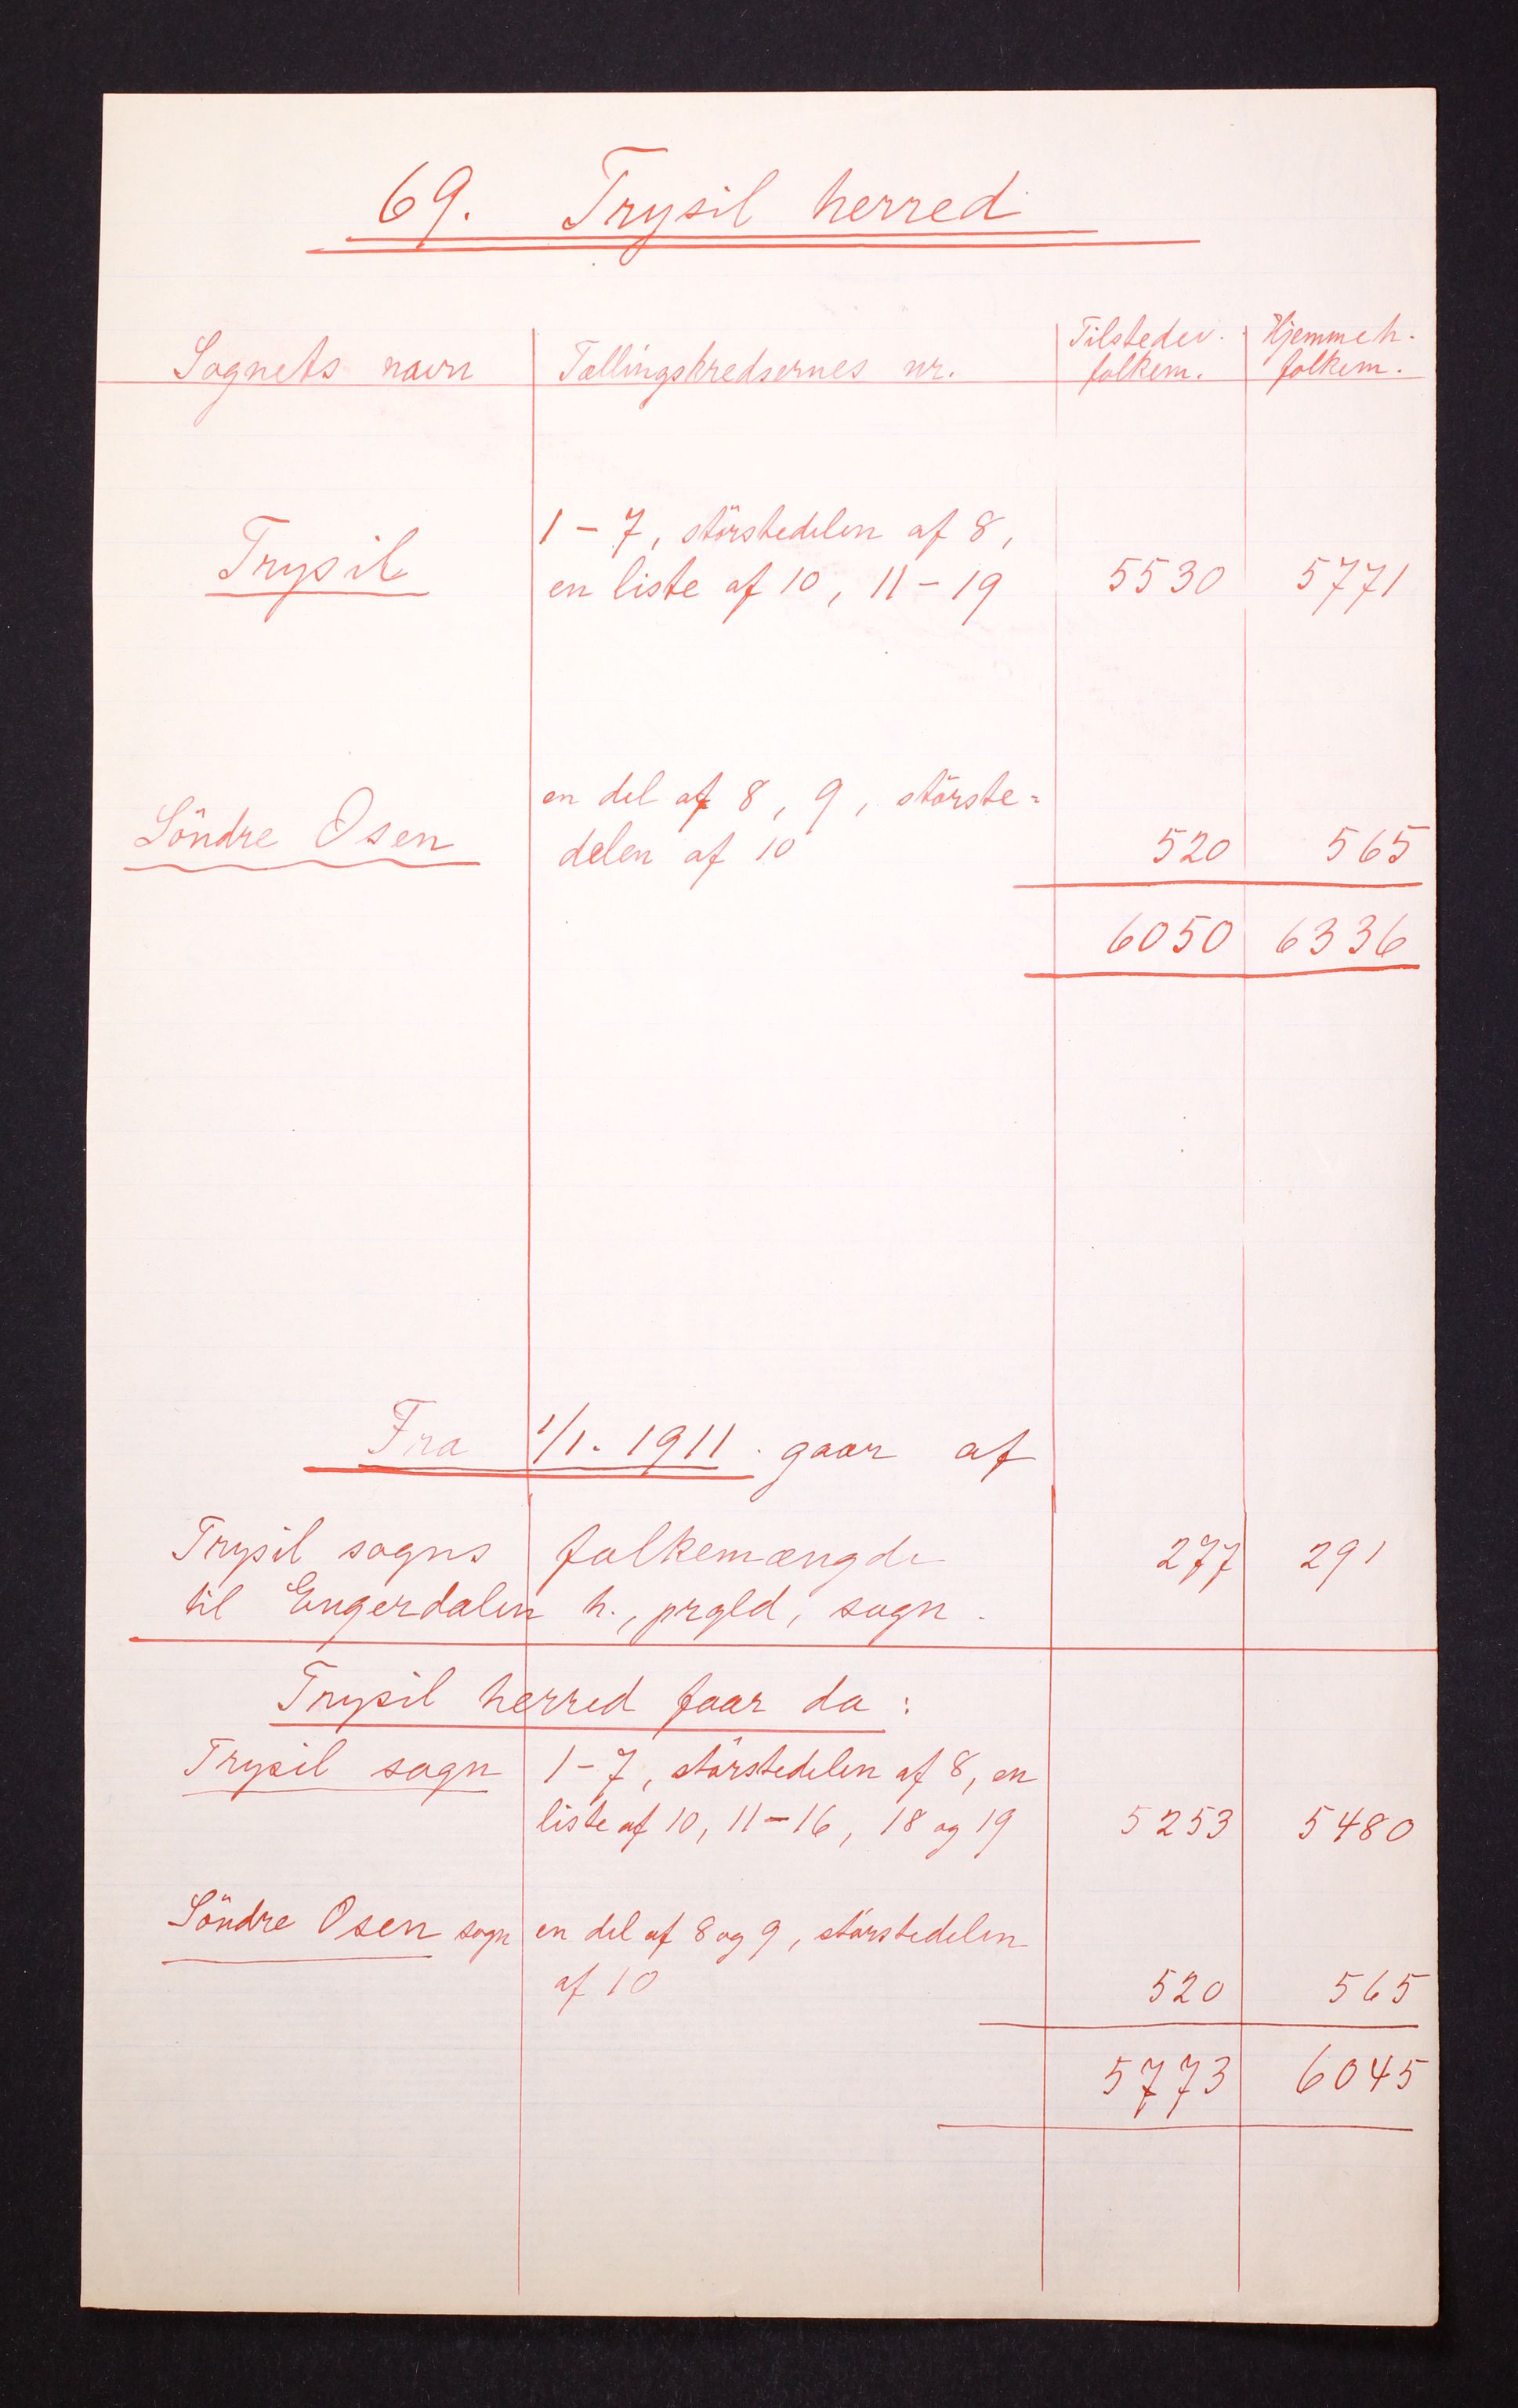 69. Trysil herred
Sognets navn Tællingskredsernes nr. Tilstedev. folkem. Hjemmeh. folkem.
1 - 7, störstedelen af 8,
Trysil en liste af 10, 11 - 19 5530 5771
en del af 8, 9, störste=
Söndre Osen delen af 10 520 565
6050 6336
Fra 1/1. 1911. gaar af
Trysil sogns folkemængde 277 291
til Engerdalen h., prgld, sogn.
Trysil herred faar da:
Trysil sogn 1-7, störstedelen af 8, en
liste af 10, 11-16, 18 og 19 5253 5480
Söndre Osen sogn en del af 8 og 9, störstedelen
af 10 520 565
5773 6045